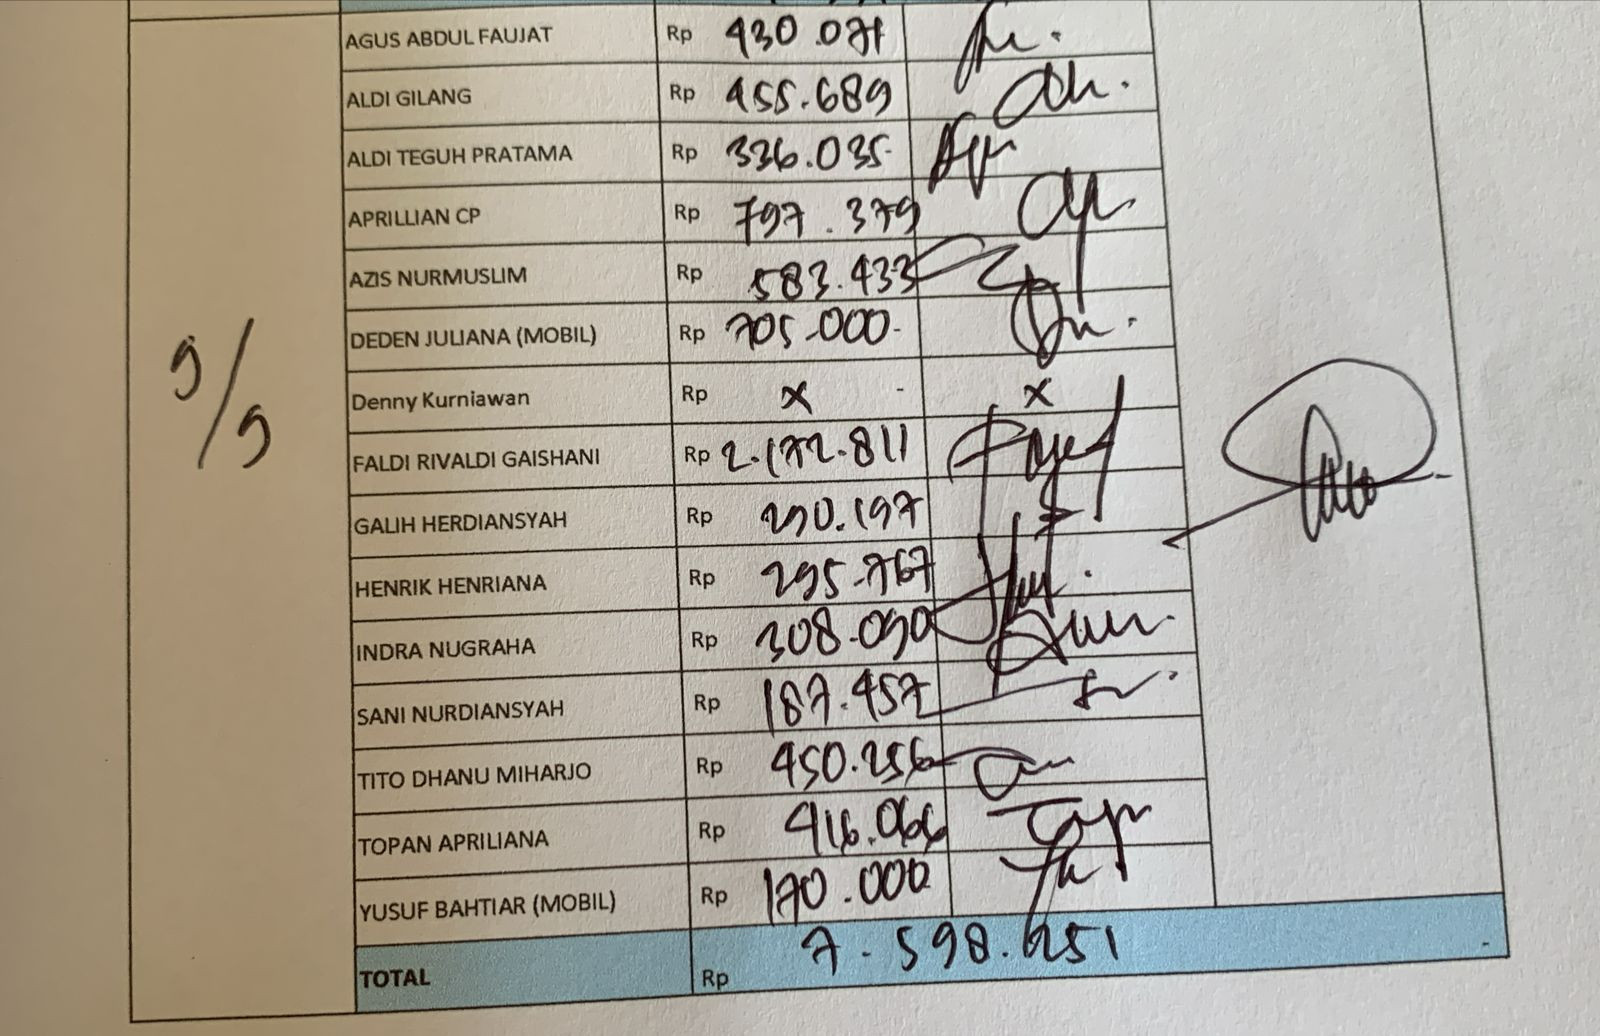 9/9
AGUS ABDUL FAUJAT Rp 430.071
ALDI GILANG Rp 455.689
ALDI TEGUH PRATAMA Rp 336.035
APRILLIAN CP Rp 797.379
AZIS NURMUSLIM Rp 583.433
DEDEN JULIANA (MOBIL) Rp 705.000-
Denny Kurniawan Rp x - x
FALDI RIVALDI GAISHANI Rp 2.172.811
GALIH HERDIANSYAH Rp 290.197
HENRIK HENRIANA Rp 295.767
INDRA NUGRAHA Rp 308.090
SANI NURDIANSYAH Rp 187.457
TITO DHANU MIHARJO Rp 450.256
TOPAN APRILIANA Rp 416.066
YUSUF BAHTIAR (MOBIL) Rp 170.000
TOTAL Rp 7.598.251 -